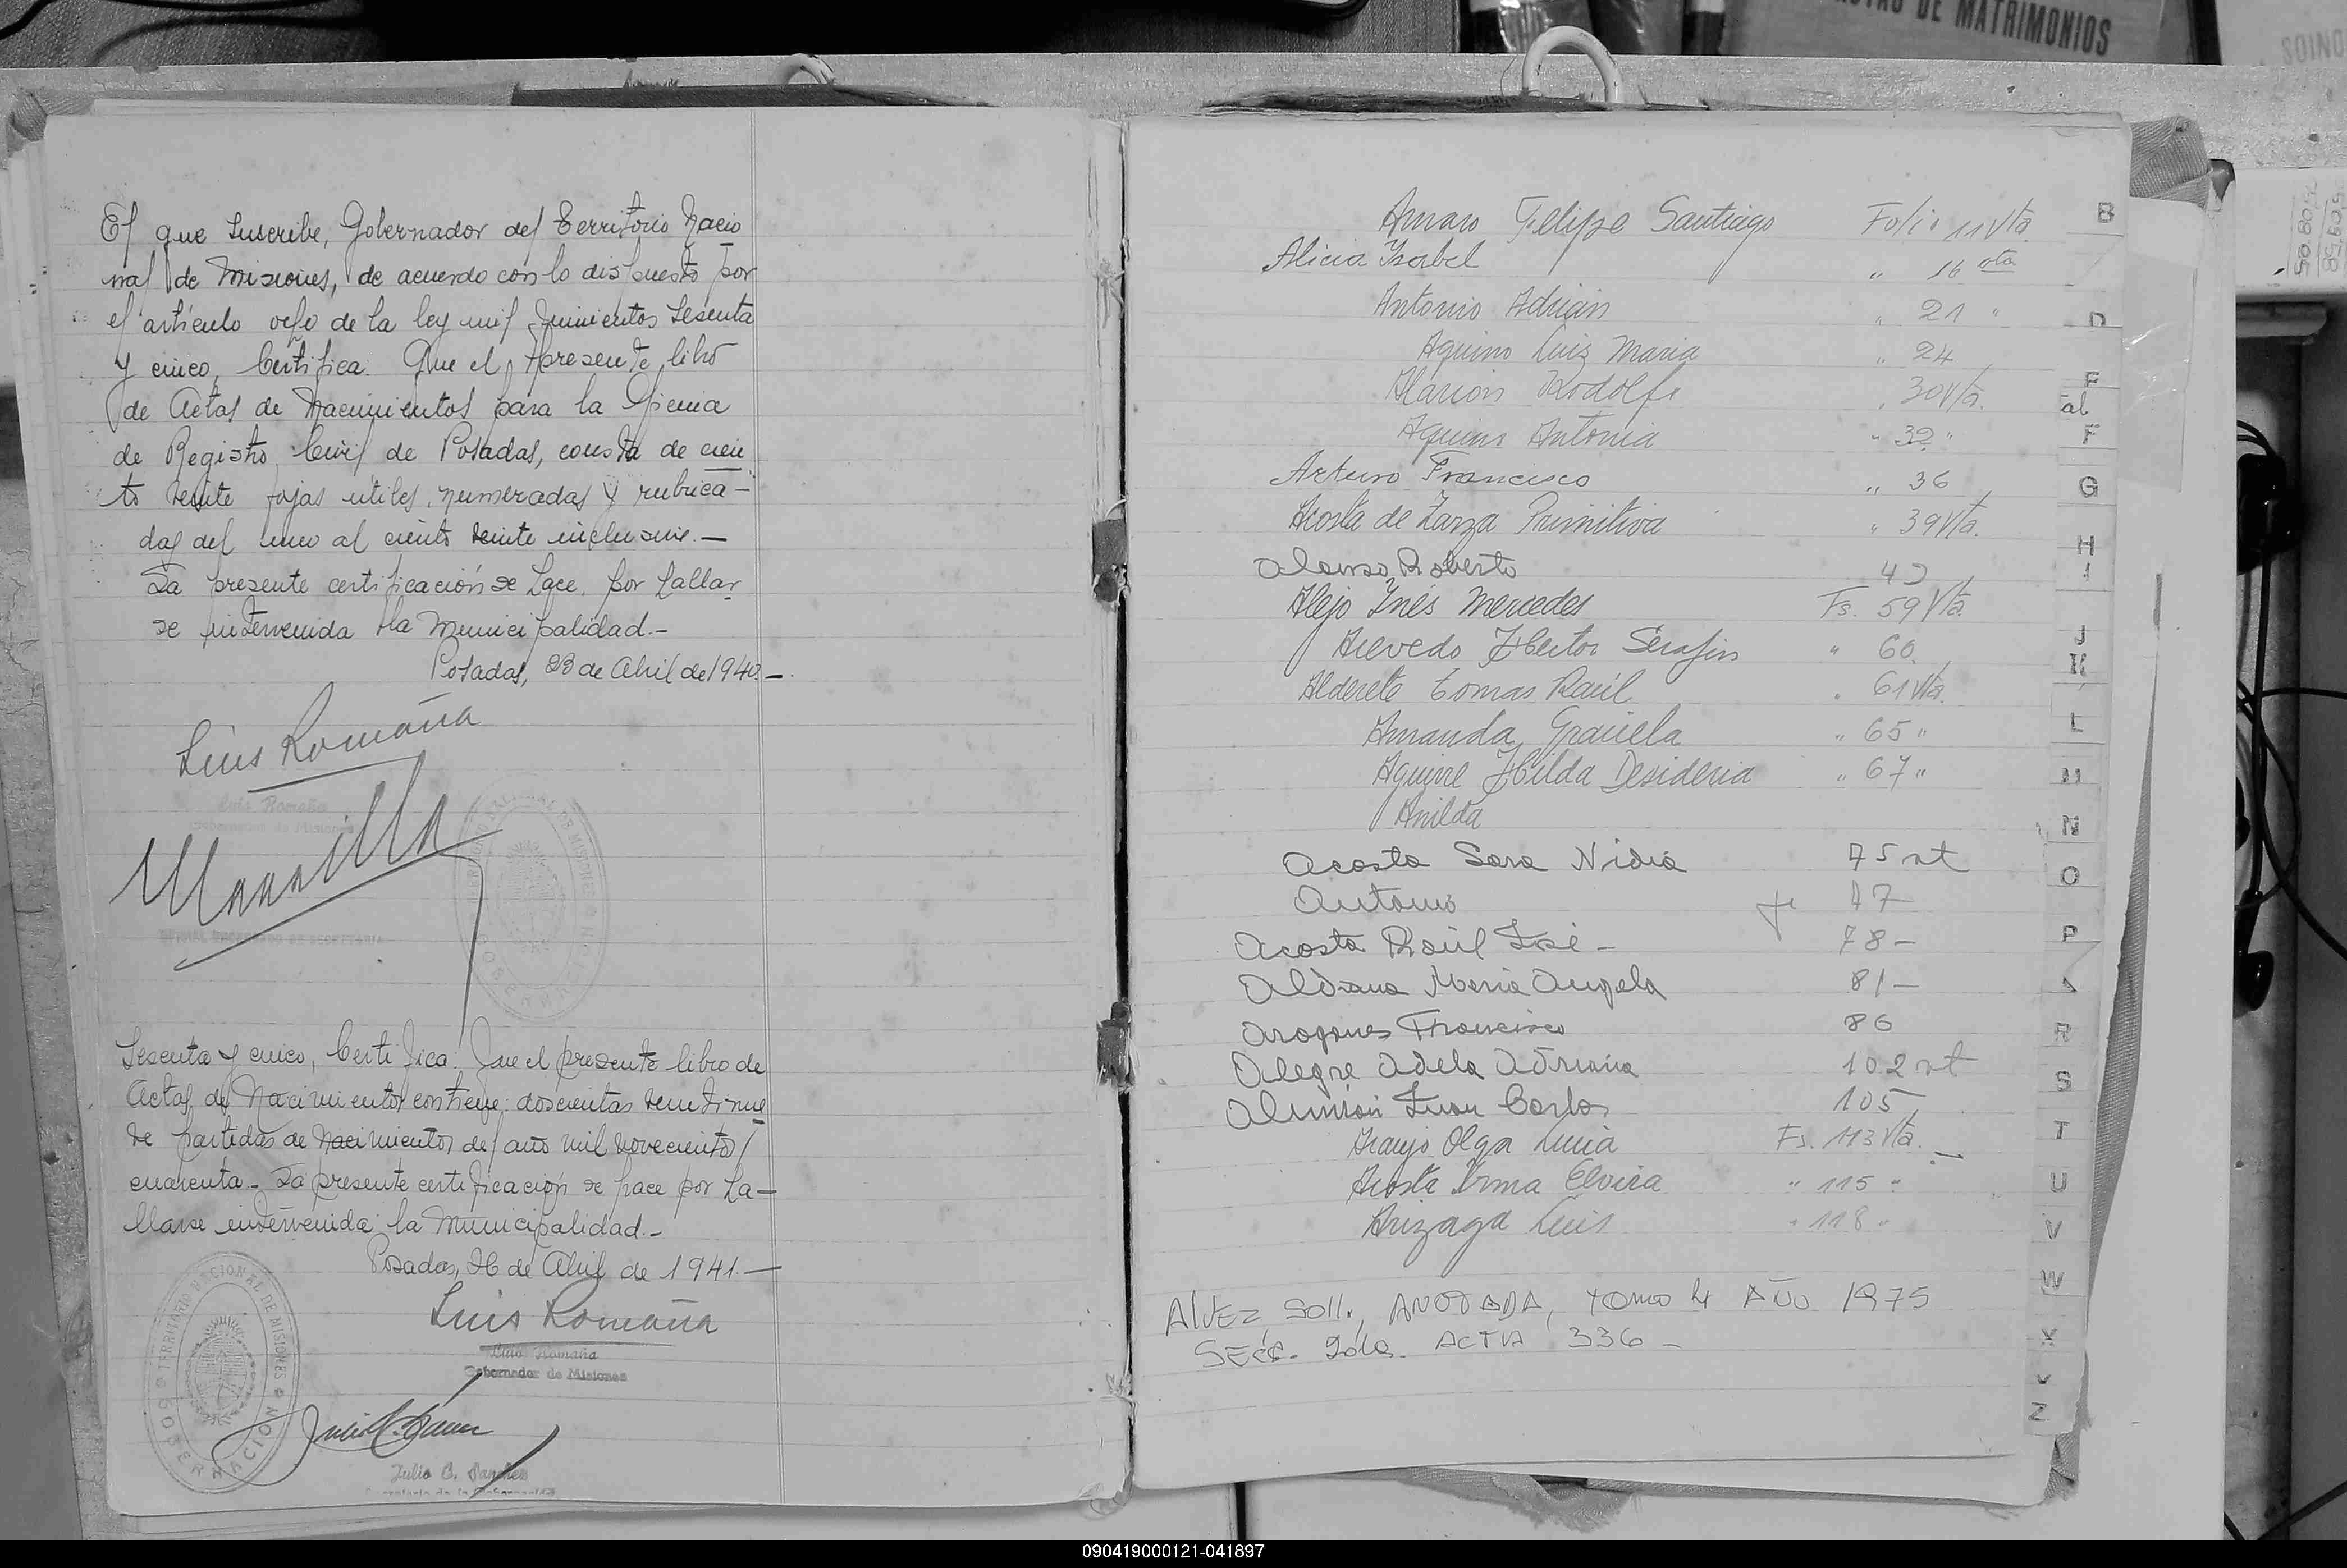 DE MATRIMONIOS
El que suscribe, Gobernador del Territorio Nacio
nal de Misiones, de acuerdo con lo dispuesto por
el artículo ocho de la ley mil quinientos sesenta
y cinco, Certifica: Que el presente libro
de Actas de Nacimientos para la Oficina
de Registro Civil de Posadas, consta de cien
to veinte fojas utiles, numeradas y rubrica-
das del uno al ciento veinte inclusive.-
La presente certificación se hace, por hallar
se intervenida la Municipalidad.-
Posadas, 23 de Abril de 1940.-
Luis Romaña
Luis Romaña
Gobernador de Misiones
TERRITORIO NACIONAL DE MISIONES
GOBERNACION
Sesenta y cinco, Certifica: Que el presente libro de
Actas de Nacimientos contiene: doscientas veintinue
ve partidas de Nacimientos del año mil novecientos
cuarenta.- La presente certificación se hace por ha-
llarse intervenida la Municipalidad.-
Posadas, 26 de Abril de 1941.-
Luis Romaña
Luis Romaña
Gobernador de Misiones
TERRITORIO NACIONAL DE MISIONES
GOBERNACION
Julio C. Sanchez
Secretario de la Gobernación
Amaro Felipe Santiago Folio 11 Vta.
Alicia Isabel " 16 vta
Antonio Adrián " 21 "
Aquino Luis Maria " 24
Alarión Rodolfo " 30 Vta.
Aquino Antonia " 32 "
Arturo Francisco " 36
Acosta de Zarza Primitiva " 39 Vta.
Alonso Roberto
Alejo Inés Mercedes Fs. 59 Vta.
Acevedo Hector Serafin " 60.
Alderete Tomas Raúl " 61 Vta.
Amanda Graciela " 65 "
Aguirre Hilda Desideria " 67 "
Anilda
Acosta Sara Nidia 75 vt
Antonio 77
Acosta Raúl José - 78 -
Aldana Maria Angela 81 -
Aragones Francisco 86
Alegre Adela Adriana 102 vt
Juan Carlos 105
Araujo Olga Lucia Fs. 113 Vta.
Acosta Irma Elvira " 115 "
Arizaga Luis " 118 "
ALVEZ, Soll., ANOTADA, TOMO 4 AÑO 1975
SECC. 2da. ACTA 336 -
B
D
F
G
H
I
J
K
L
M
N
O
P
R
S
T
U
V
W
X
Y
Z
090419000121-041897